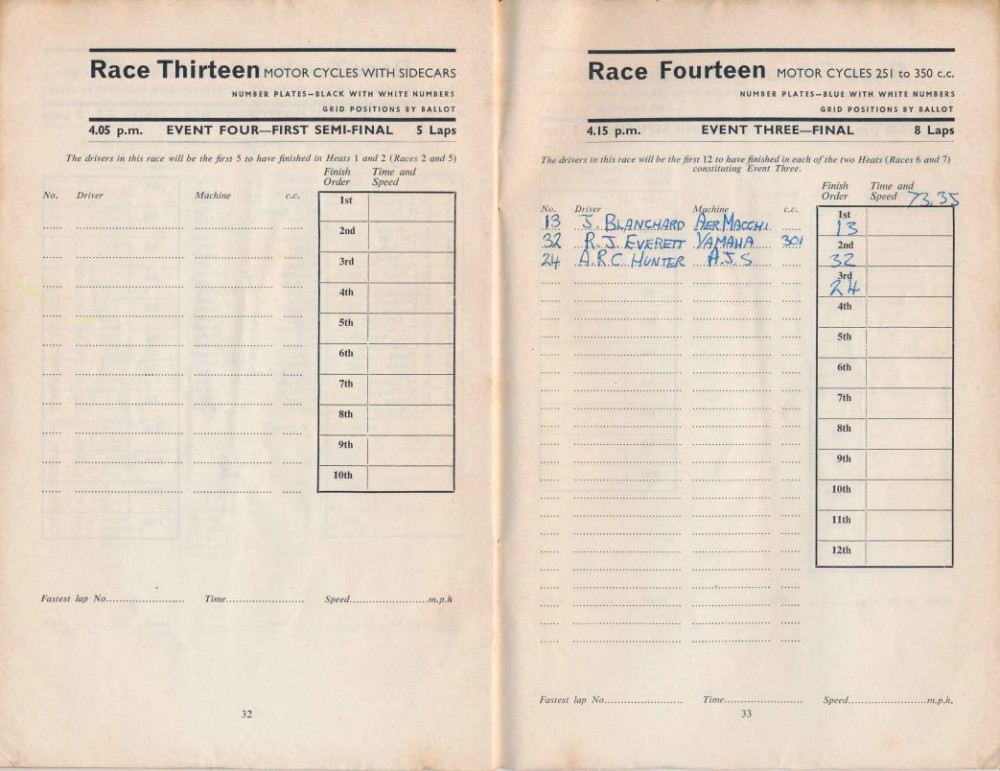 Race Thirteen MOTOR CYCLES WITH SIDECARS
NUMBER PLATES—BLACK WITH WHITE NUMBERS
GRID POSITIONS BY BALLOT
4.05 p.m. EVENT FOUR—FIRST SEMI-FINAL 5 Laps
The drivers in this race will be the first 5 to have finished in Heats 1 and 2 (Races 2 and 5)
Finish Order Time and Speed
No. Driver Machine c.c.
1st
2nd
3rd
4th
5th
6th
7th
8th
9th
10th
Fastest lap No. Time Speed m.p.h
32
Race Fourteen MOTOR CYCLES 251 to 350 c.c.
NUMBER PLATES—BLUE WITH WHITE NUMBERS
GRID POSITIONS BY BALLOT
4.15 p.m. EVENT THREE—FINAL 8 Laps
The drivers in this race will be the first 12 to have finished in each of the two Heats (Races 6 and 7)
constituting Event Three.
Finish Order Time and Speed 73.35
No. Driver Machine c.c.
13 J. BLANCHARD AERMACCHI
32 R.J. EVERETT YAMAHA 301
24 A.R.C HUNTER A.J.S
1st
13
2nd
32
3rd
24
4th
5th
6th
7th
8th
9th
10th
11th
12th
Fastest lap No. Time Speed m.p.h.
33